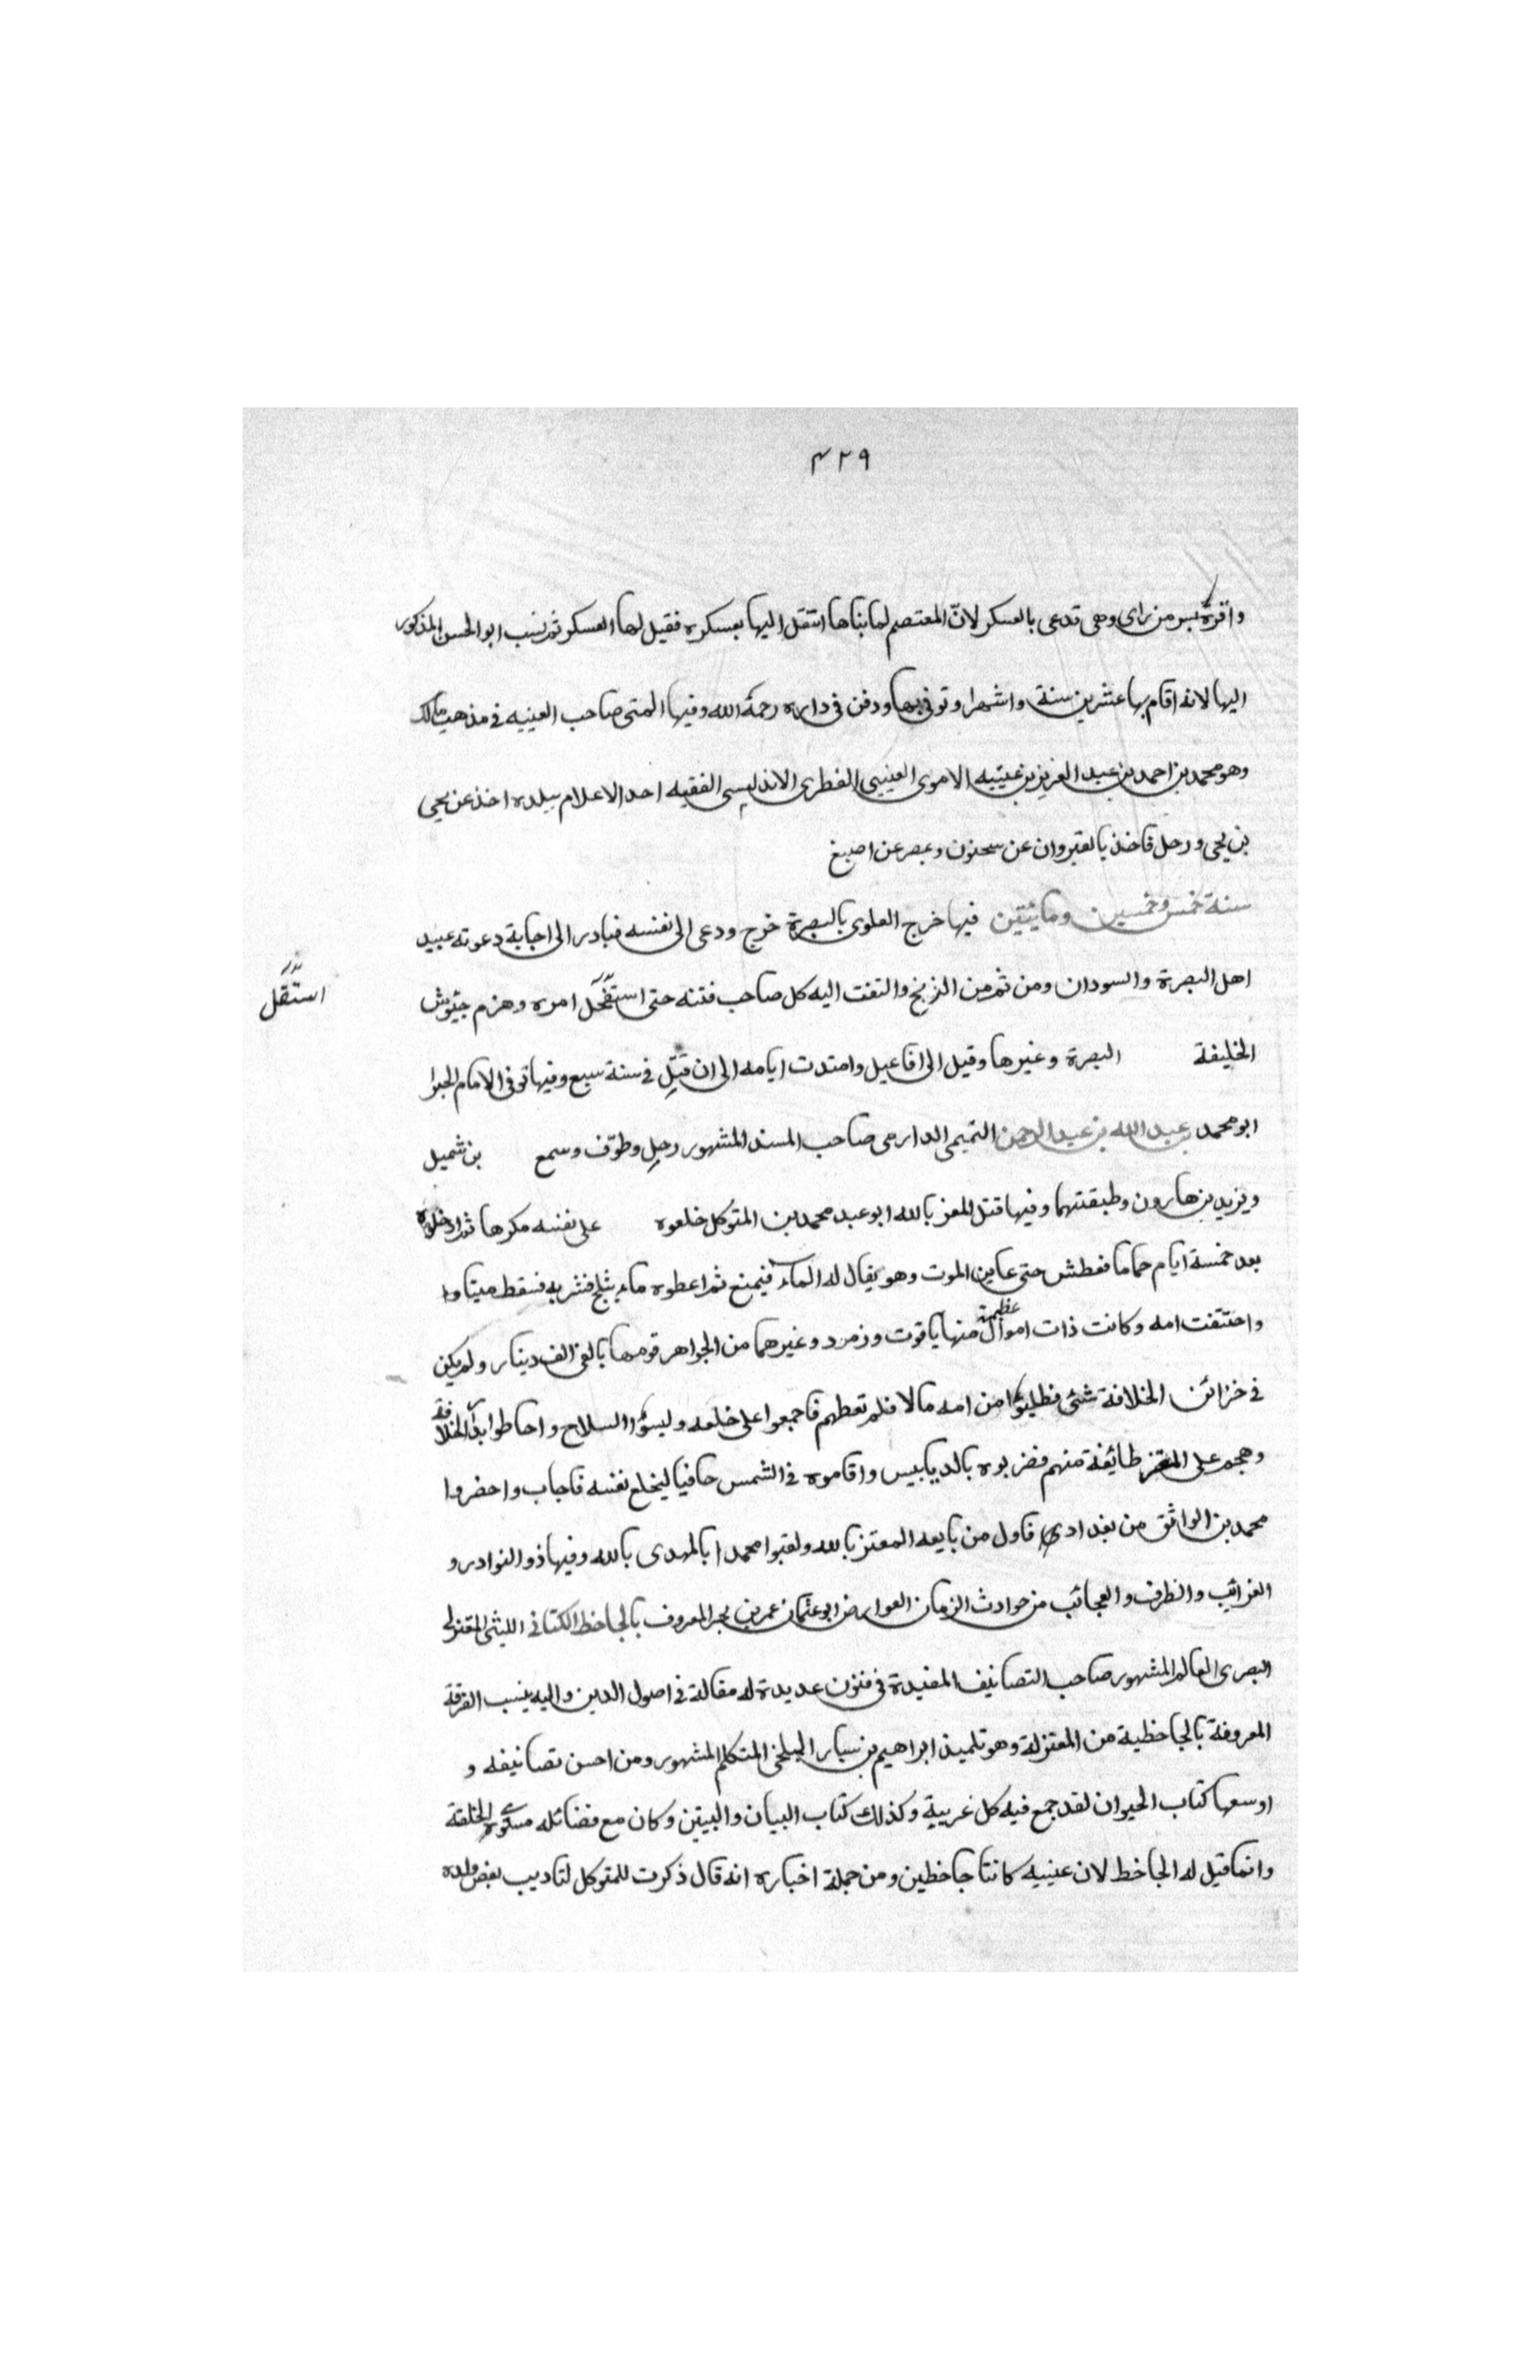 ٤٢٩
واقره بسر من راى وهى تدعى بالعسكر لانّ المعتصم لما بناها انتقل اليها بعسكره فقيل لها العسكر ثم نسب ابو الحسن المذكور
اليها لانه اقام بها عشرين سنة واشهرا وتوفى بها ودفن فى داره رحمة الله وفيها العتبى صاحب العتبيه فى مذهب مالك
وهو محمد بن احمد بن عبد العزيز بن عتبيه الاموى العتيبى القطرى الاندلسى الفقيه احد الاعلام ببلده اخذ عن يحيى
بن يحيى ورحل فاخذ بالقيروان عن سحنون وبمصر عن اصبغ
سنة خمس وخمسين ومائتين فيها خرج العلوى بالبصرة خرج ودعى الى نفسه فبادر الى اجابة دعوته عبيد
اهل البصرة والسودان ومن ثم من الزنج والتفت اليه كل صاحب فتنه حتى استفحل امره وهزم جيوش
استقل
الخليفة البصرة وغيرها وقيل الى افاعيل وامتدت ايامه الى ان قتل فى سنة سبع وفيها توفى الامام الحبر
ابو محمد عبد الله بن عبد الرحمن التميمى الدارمى صاحب المسند المشهور رحل وطوّف وسمع بن شميل
ويزيد بن هارون وطبقتهما وفيها قتل المعز بالله ابو عبد محمد بن المتوكل خلعوه على نفسه مكرها ثم ادخلوه
بعد خمسة ايام حماما فعطش حتى عاين الموت وهو يقال له الماء فيمنع ثم اعطوه ماء بثلج فشربه فسقط ميتا وا
واختفت امه وكانت ذات اموال عظيمة منها ياقوت وزمرد وغيرهما من الجواهر قومها بالفى الف دينار ولم يكن
فى خزائن الخلافة شئ فطلبوا من امه مالا فلم تعطهم فاجمعوا على خلعه ولبسوا السلاح واحاطوا بدار الخلافة
وهجم على المعتز طائفة منهم فضربوه بالدبابيس واقاموه فى الشمس حافيا ليخلع نفسه فاجاب واحضروا
محمد بن الواثق من بغداد فاول من بايعه المعتز بالله ولقبوا محمدا بالمهدى بالله وفيها ذو النوادر و
الغرائب والظرف والعجائب من حوادث الزمان العوارض ابو عثمان عمر بن بحر المعروف بالجاحظ الكنانى الليثى المعتزلى
البصرى العالم المشهور صاحب التصانيف المفيدة فى فنون عديدة له مقالة فى اصول الدين واليه ينسب الفرقة
المعروفة بالجاحظية من المعتزلة وهو تلميذ ابراهيم بن سيار البلخى المتكلم المشهور ومن احسن تصانيفه و
اوسعها كتاب الحيوان لقد جمع فيه كل غريبة وكذلك كتاب البيان والتبيين وكان مع فضائله مشوه الخلقة
وانما قيل له الجاحظ لان عينيه كانتا جاحظين ومن جملة اخباره انه قال ذكرت للمتوكل لتاديب بعض ولده